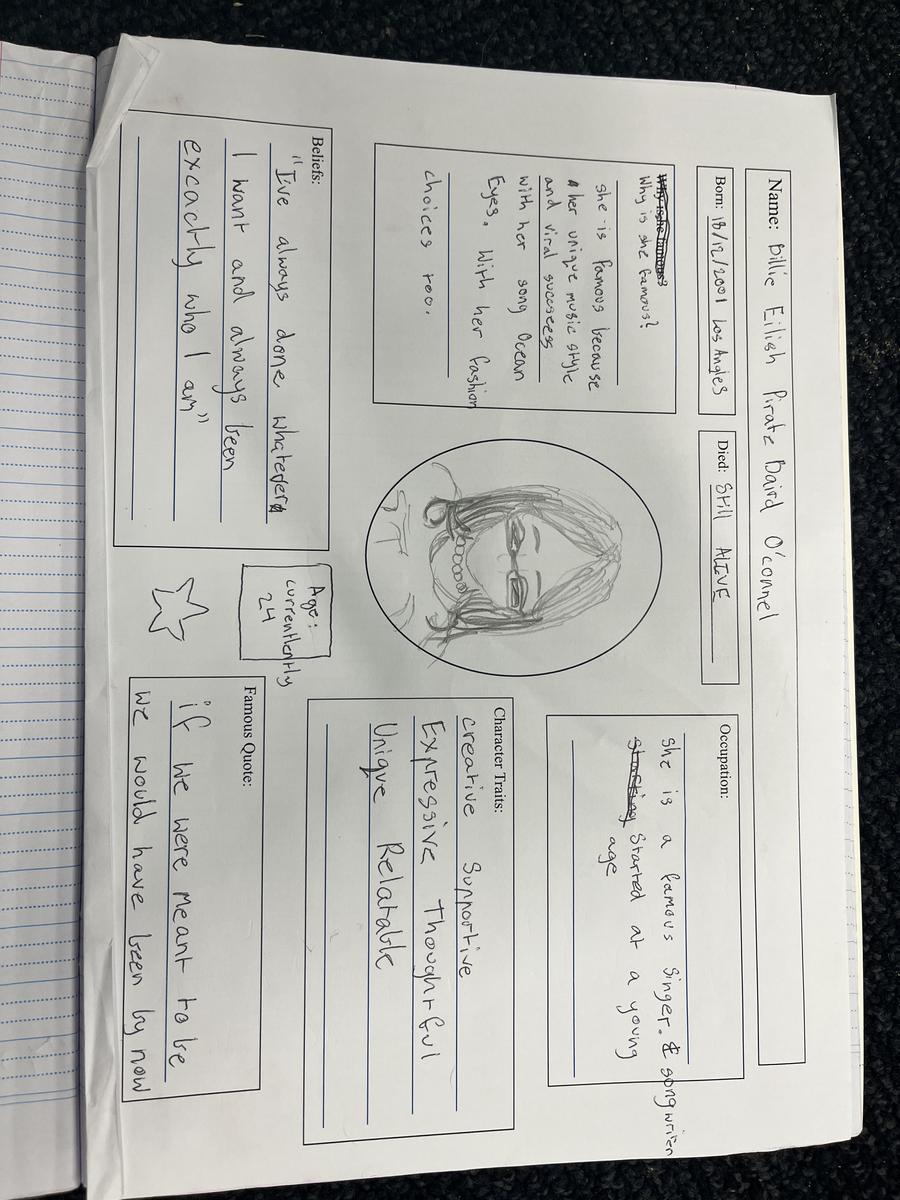 Name: Billie Eilish Pirate Baird O'connel
Born: 18/12/2001 Los Angles
Died: Still ALIVE
Why is she famous?
Why is she famous?
she is famous because
her unique music style
and viral sucsees
with her song Ocean
Eyes. With her fashion
choices too.
Occupation:
she is a famous singer. & songwriter
Started at a young
age
Character Traits:
creative Supportive
Expressive Thoughtful
Unique Relatable
Beliefs:
"I've always done whatever
I want and always been
excactly who I am"
Age:
currentlently
24
Famous Quote:
if we were meant to be
we would have been by now